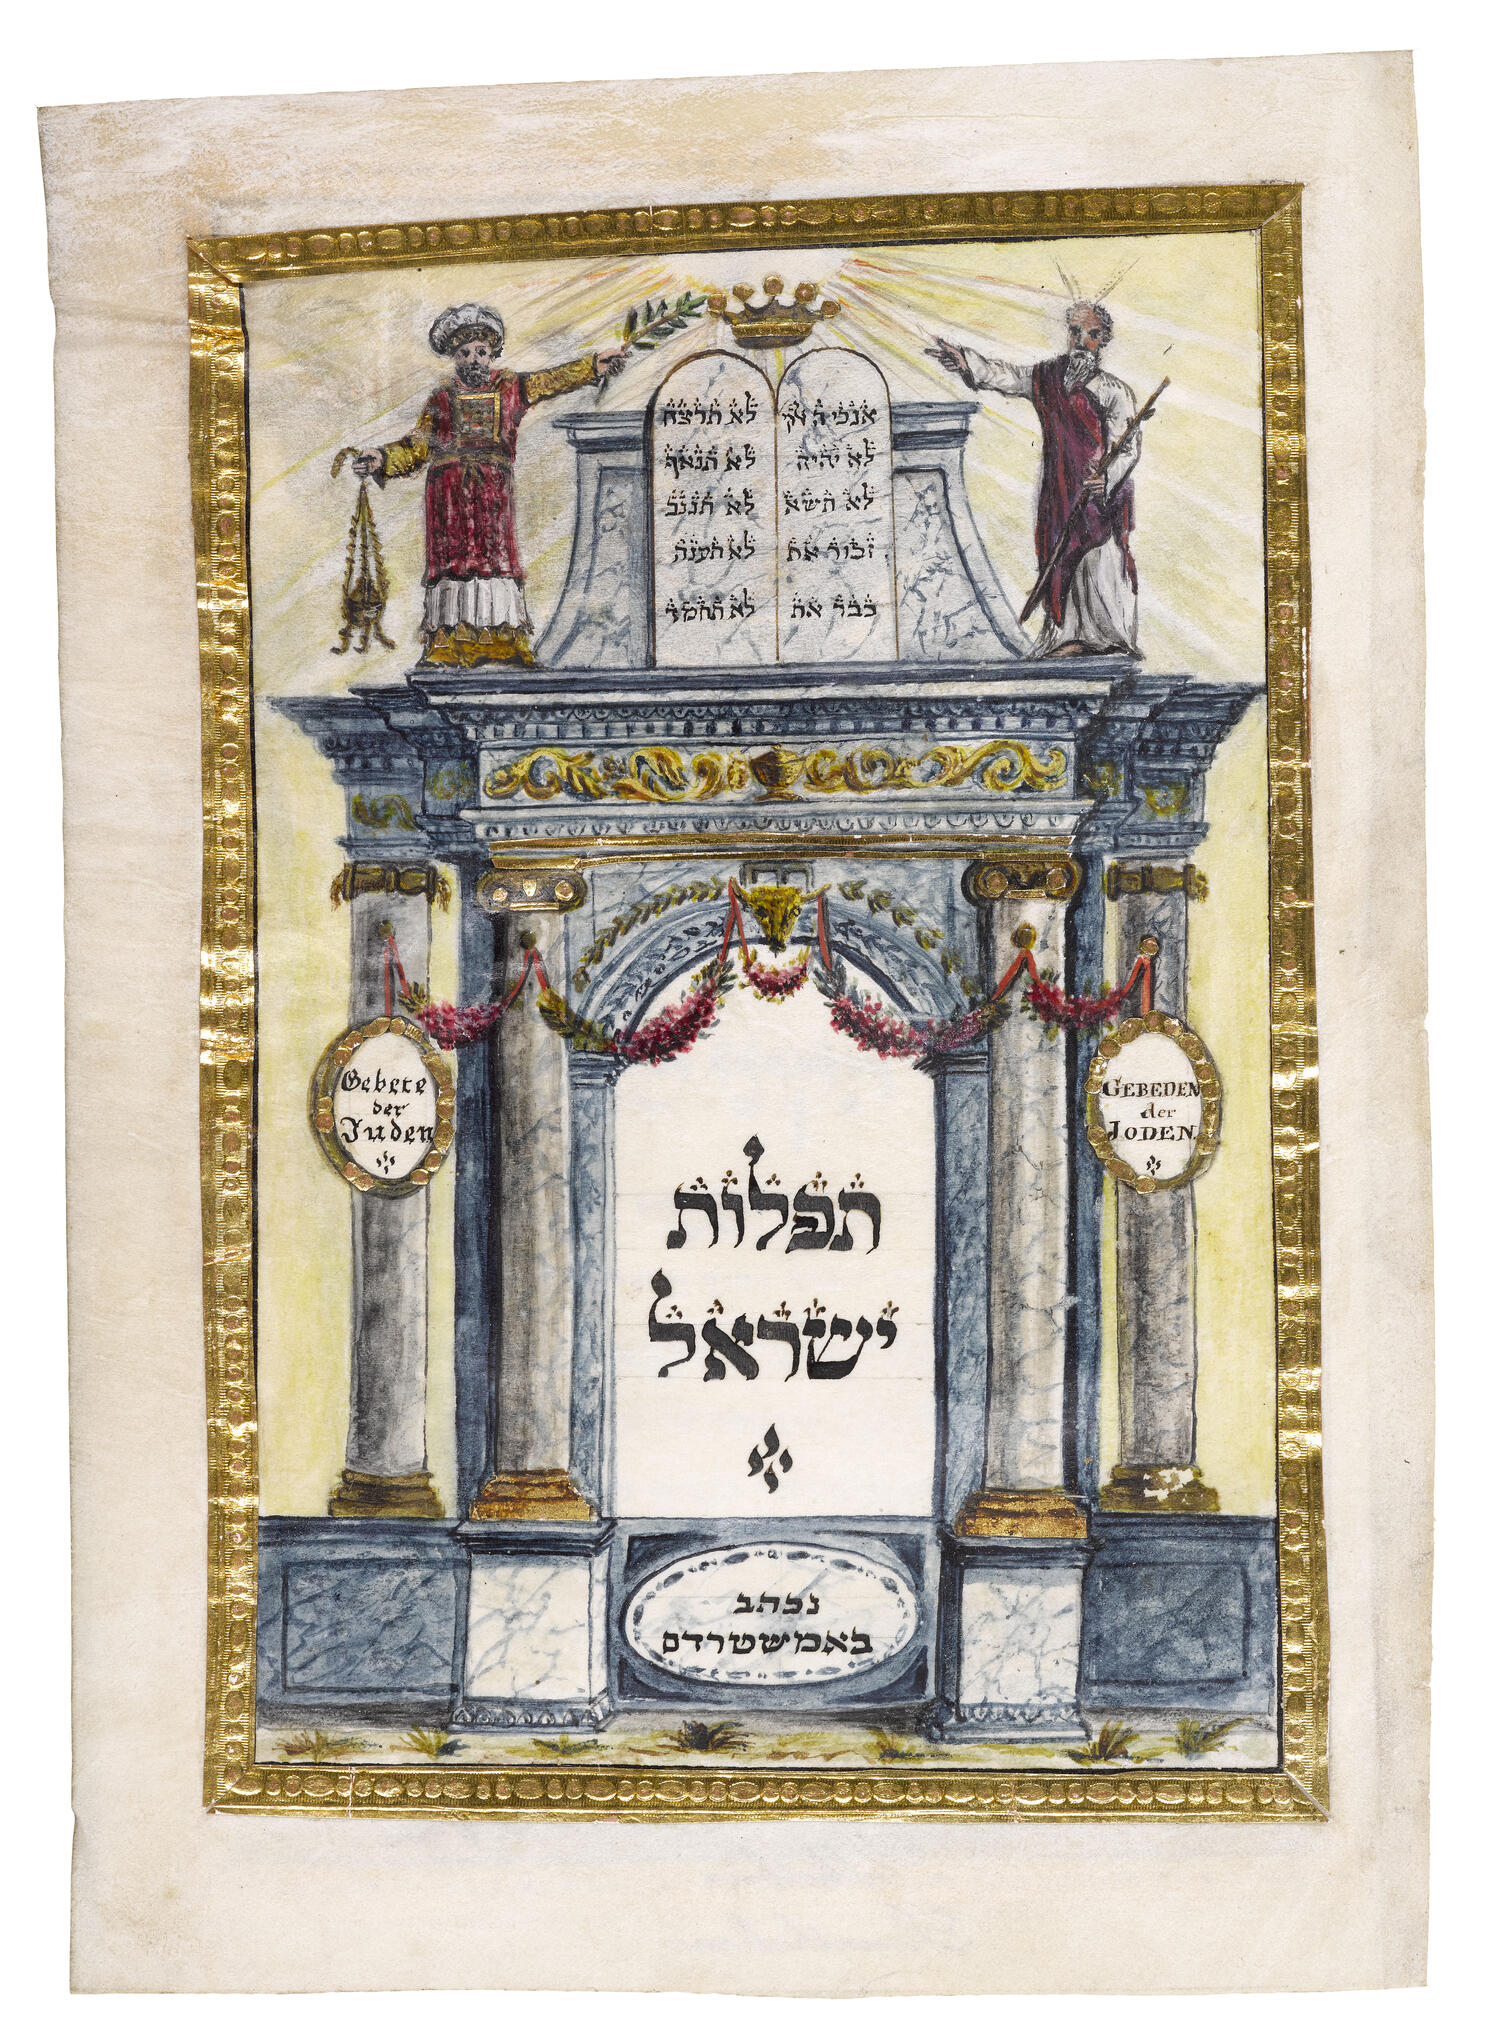 אנכי
לא יהיה
לא תשא
זכור את
כבד את
לא תרצח
לא תנאף
לא תגנב
לא תענה
לא תחמד
Gebete
der
Juden
GEBEDEN
der
JODEN
תפלות
ישראל
נכתב
באמשטרדם